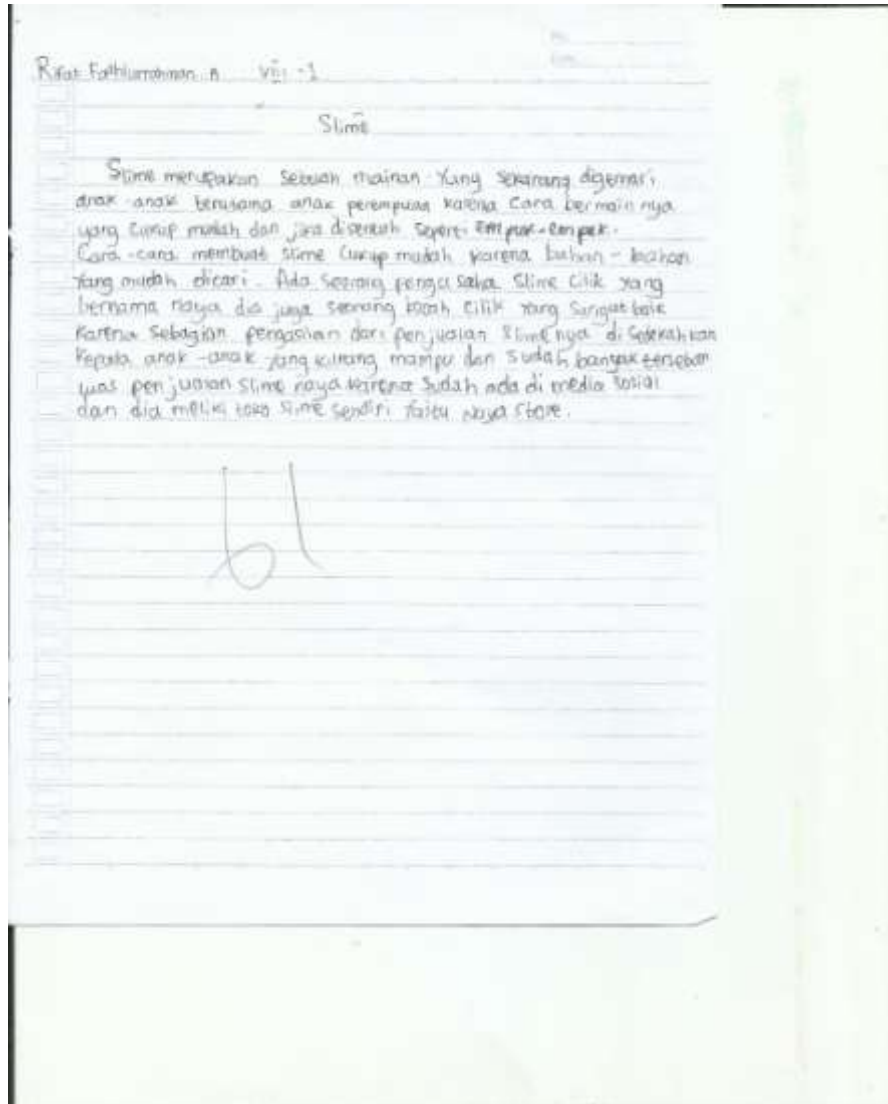 Rifat Fathlurrahman A VIII - 1
Slime
Slime merupakan sebuah mainan yang sekarang digemari
anak anak terutama anak perempuan karena cara bermain nya
yang cukup mudah dan jika disentuh seperti empuk-empuk.
Cara-cara membuat slime cukup mudah karena bahan - bahan
yang mudah dicari. Ada seorang pengusaha Slime Cilik yang
bernama naya dia juga seorang bocah cilik yang sangat baik
karena sebagian dari penjualan Slime nya di sedekahkan
kepada anak -anak yang kurang mampu dan sudah banyak tersebar
luas penjualan slime naya karena sudah ada di media sosial
dan dia toko slime sendiri yaitu Naya Store.
61